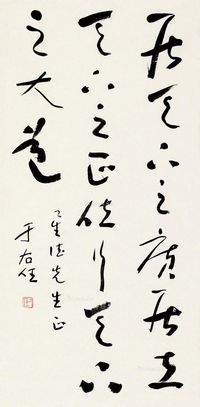 居天下之廣居立
天下之正位行天下
之大道
先生正
于右任